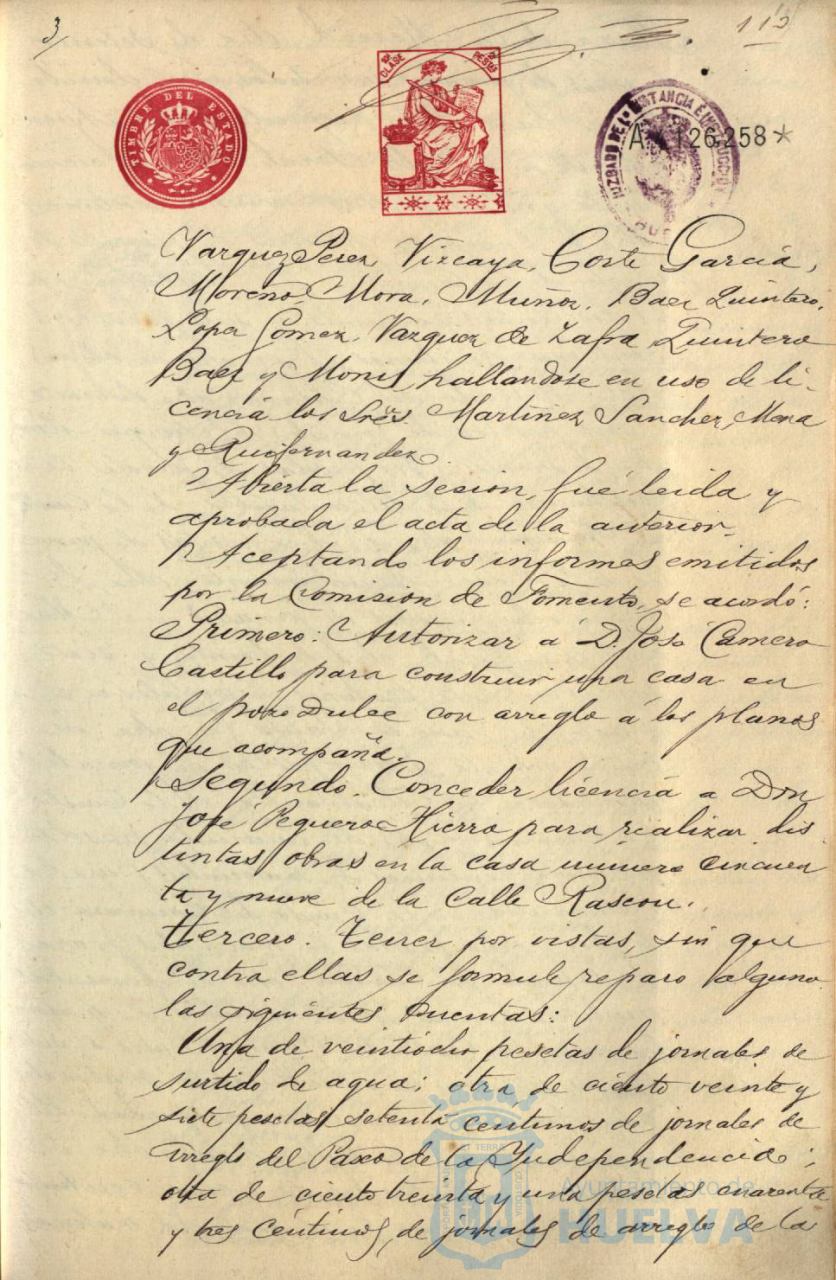 3
112
10ª CLASE
2 PESETAS
TIMBRE DEL ESTADO
JUZGADO DE 1ª INSTANCIA E INSTRUCCION
HU
A 126.258*
Vazquez Perez, Vizcaya, Corte Garciá,
Moreno, Mora, Muñoz, Baez Quintero,
Lopez Gomez, Vazquez de Zafra, Quintero
Baez y Monis, hallandose en uso de li-
cenciá los Sres. Martinez Sanchez, Mena
y Ruifernandez.
Abierta la sesion, fué leida y
aprobada el acta de la anterior.
Aceptando los informes emitidos
por la Comision de Fomento, se acordó:
Primero: Autorizar á D. José Camero
Castillo para construir una casa en
el pozo Dulce con arreglo á los planos
que acompaña.
Segundo. Conceder licenciá a Don
José Peguero Hierro para realizar dis
tintas obras en la casa número cincuen
ta y nueve de la calle Rascon.
Tercero. Tener por vistas, sin que
contra ellas se formule reparo alguno
las siguientes cuentas:
Una de veintiocho pesetas de jornales de
surtido de agua; otra, de ciento veinte y
siete pesetas setenta centimos de jornales de
arreglo del Paseo de la Independencia;
otra de ciento treinta y una pesetas cuarenta
y tres céntimos, de jornales de arreglo de la
Ayuntamiento de
HUELVA